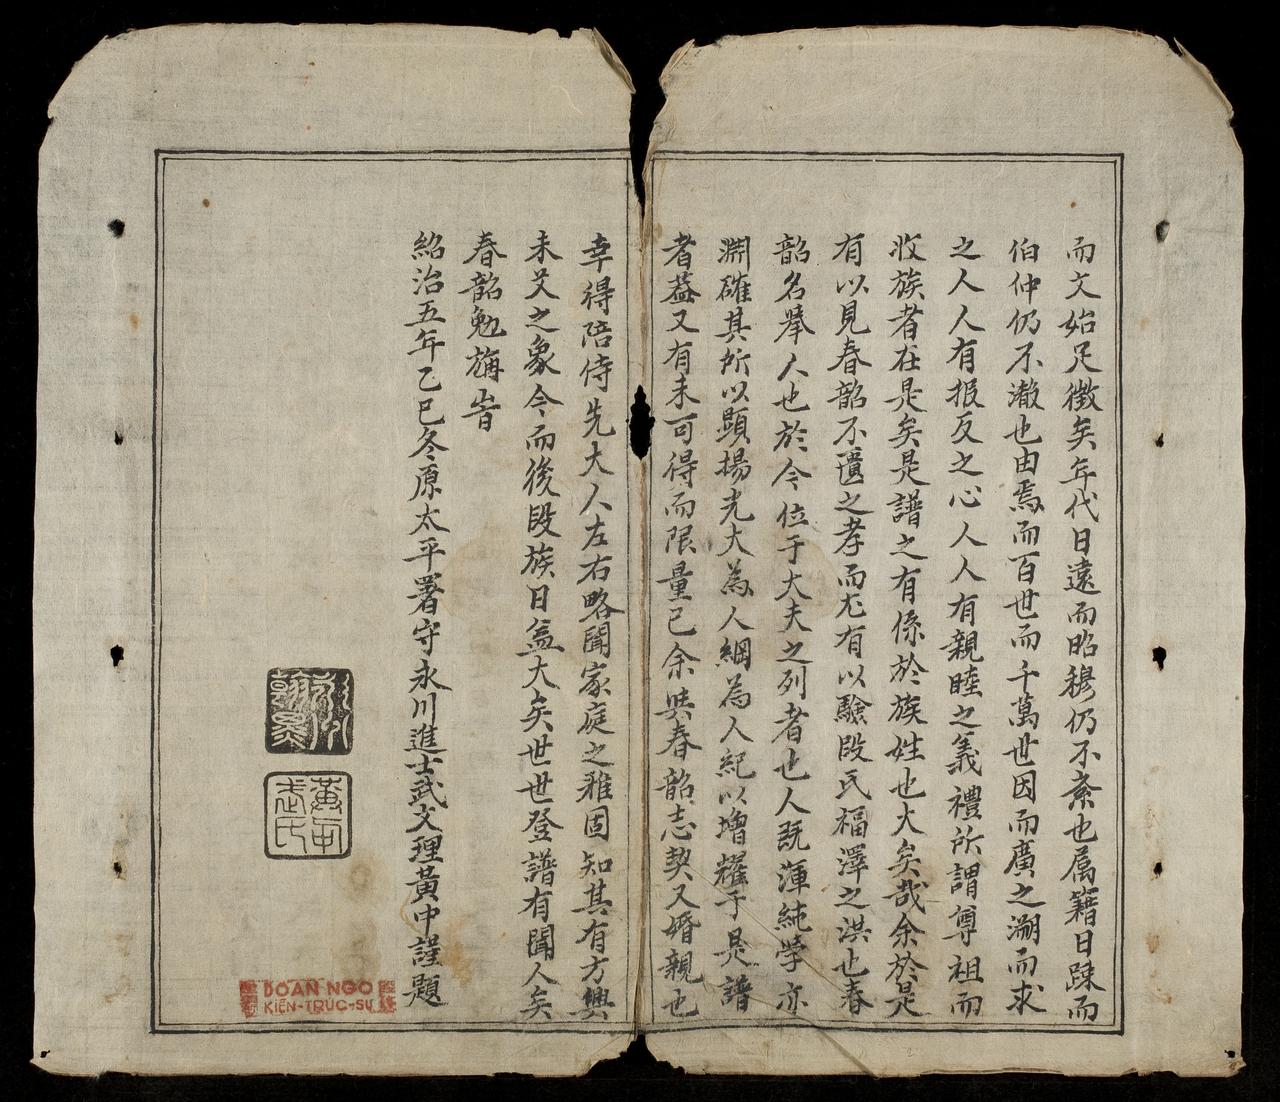 而文始足徵矣年代日遠而昭穆仍不紊也属籍日踈而
伯仲仍不澈也由焉而百世而千萬世因而廣之溯而求
之人人有报反之心人人有親睦之義禮所謂尊祖而
收族者在是矣是譜之有係於族姓也大矣哉余於是
有以見春韶不匱之孝而尤有以驗段氏福澤之洪也春
韶名舉人也於今位于大夫之列者也人既渾純学亦
淵確其所以顯揚光大為人綱為人紀以增耀于是譜
者葢又有未可得而限量已余與春韶志契又婚親也
幸得陪侍先大人左右略聞家庭之雅固知其有方興
未艾之象今而後段族日益大矣世世登譜有聞人矣
春韶勉旃旹
紹治五年乙巳冬原太平署守永川進士武文理黃中謹題
黃中
武氏
DOAN NGO
KIẾN-TRÚC-SƯ